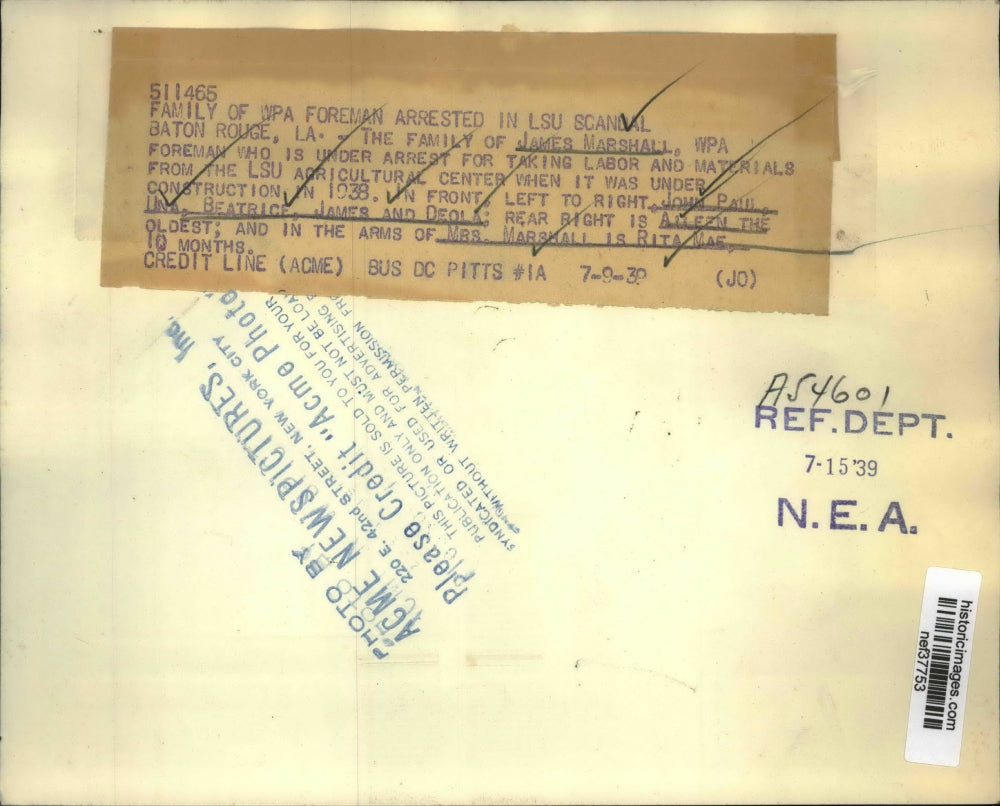 511465
FAMILY OF WPA FOREMAN ARRESTED IN LSU SCANDAL
BATON ROUGE, LA. - THE FAMILY OF JAMES MARSHALL, WPA
FOREMAN WHO IS UNDER ARREST FOR TAKING LABOR AND MATERIALS
FROM THE LSU AGRICULTURAL CENTER WHEN IT WAS UNDER
CONSTRUCTION IN 1938. IN FRONT, LEFT TO RIGHT, JOHN PAUL,
UNA, BEATRICE, JAMES AND DEOLA; REAR RIGHT IS AILEEN THE
OLDEST; AND IN THE ARMS OF MRS. MARSHALL IS RITA MAE,
10 MONTHS.
CREDIT LINE (ACME) BUS DC PITTS #1A 7-9-39 (JO)
PHOTO BY
ACME NEWSPICTURES, Inc.
220 E. 42nd STREET, NEW YORK CITY
Please Credit "Acme Photo
THIS PICTURE IS SOLD TO YOU FOR YOUR
PUBLICATION ONLY AND MUST NOT BE
SYNDICATED OR USED FOR ADVERTISING
WITHOUT WRITTEN PERMISSION
A54601
REF. DEPT.
7-15'39
N.E.A.
historicimages.com
nef37753